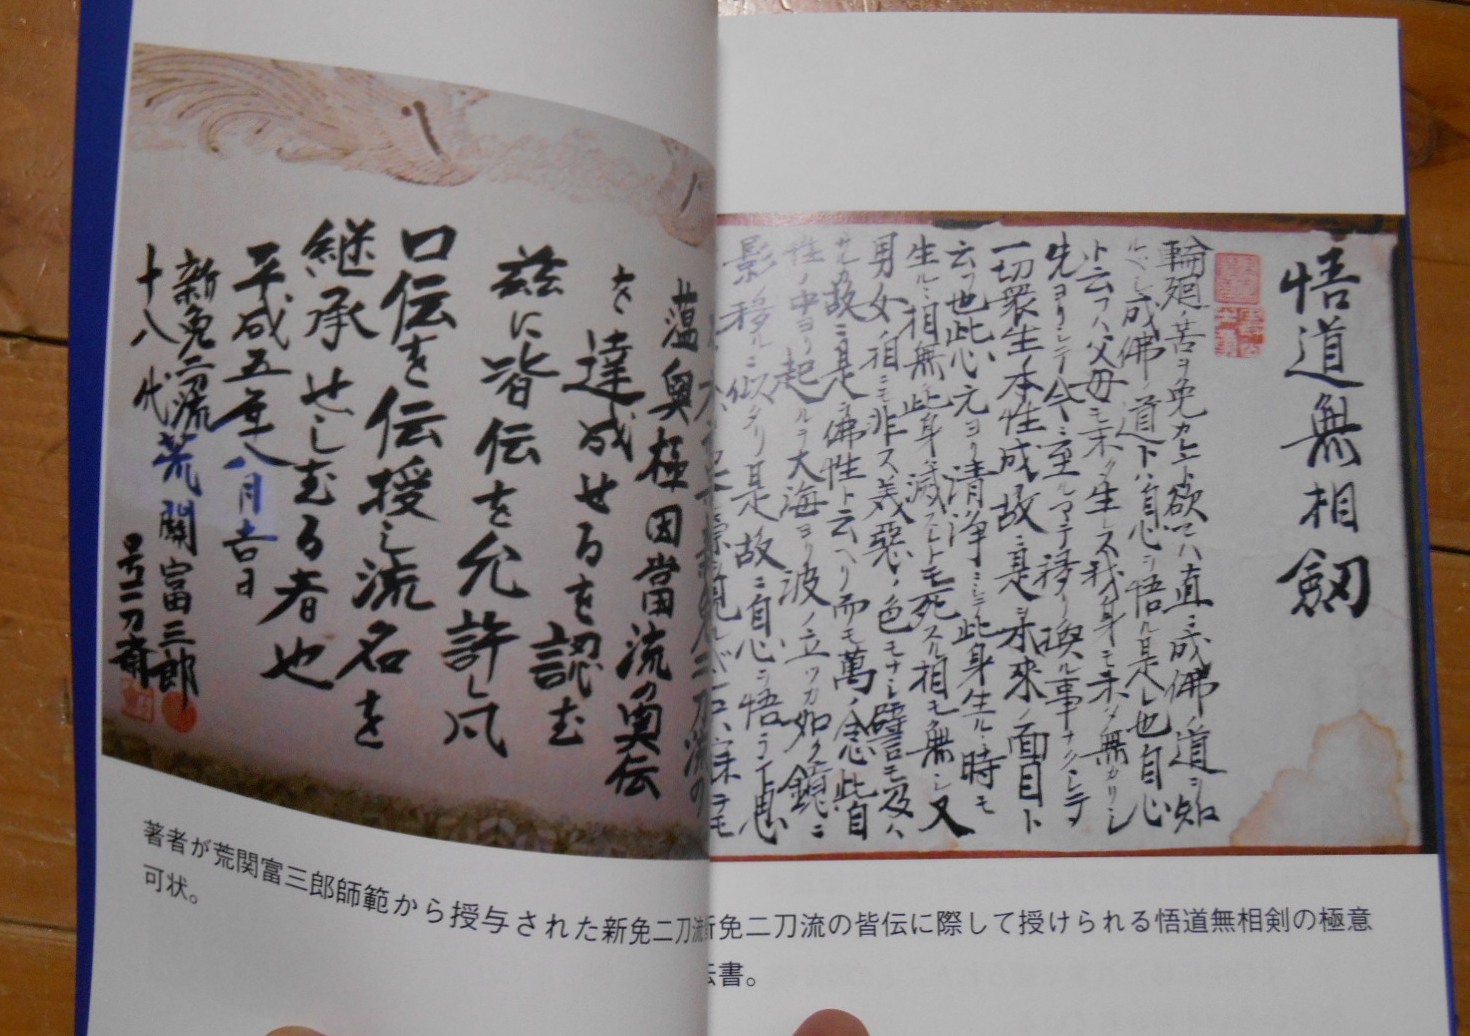 悟道無相剱
輪廻ノ苦ヲ免カレント欲セハ直ニ成佛ノ道ヲ知
ルベシ成佛ノ道トハ自心ヲ悟ル是レ也自心
ト云フハ父母モ未タ生レス我身モ未タ無カリシ
先ヨリシテ今ニ至ルマテ移リ換ル事ナクシテ
一切衆生ノ本性成故ニ是ヲ本來ノ面目ト
云フ也此心元ヨリ清浄ニシテ此身生ルヽ時モ
生ルヽ相無ク此身滅スレトモ死スル相モ無シ又
男女ノ相ニモ非ス善惡ノ色モナシ譬モ及ハ
サル故ニ是ヲ佛性ト云ヘリ而モ萬ノ念此自
性ノ中ヨリ起ル大海ヨリ波ノ立ツカ如ク鏡ニ
影ノ移ルニ似タリ是故ニ自心ヲ悟ラント
新免二刀流の皆伝に際して授けられる悟道無相剣の極意
伝書。
蘊奥極因當流の奥伝
を達成せるを認む
茲に皆伝を允許し
口伝を伝授し流名を
継承せしむる者也
平成五年八月吉日
新免二刀流荒關富三郎
十八代 号二刀斎
著者が荒関富三郎師範から授与された新免二刀流
可状。